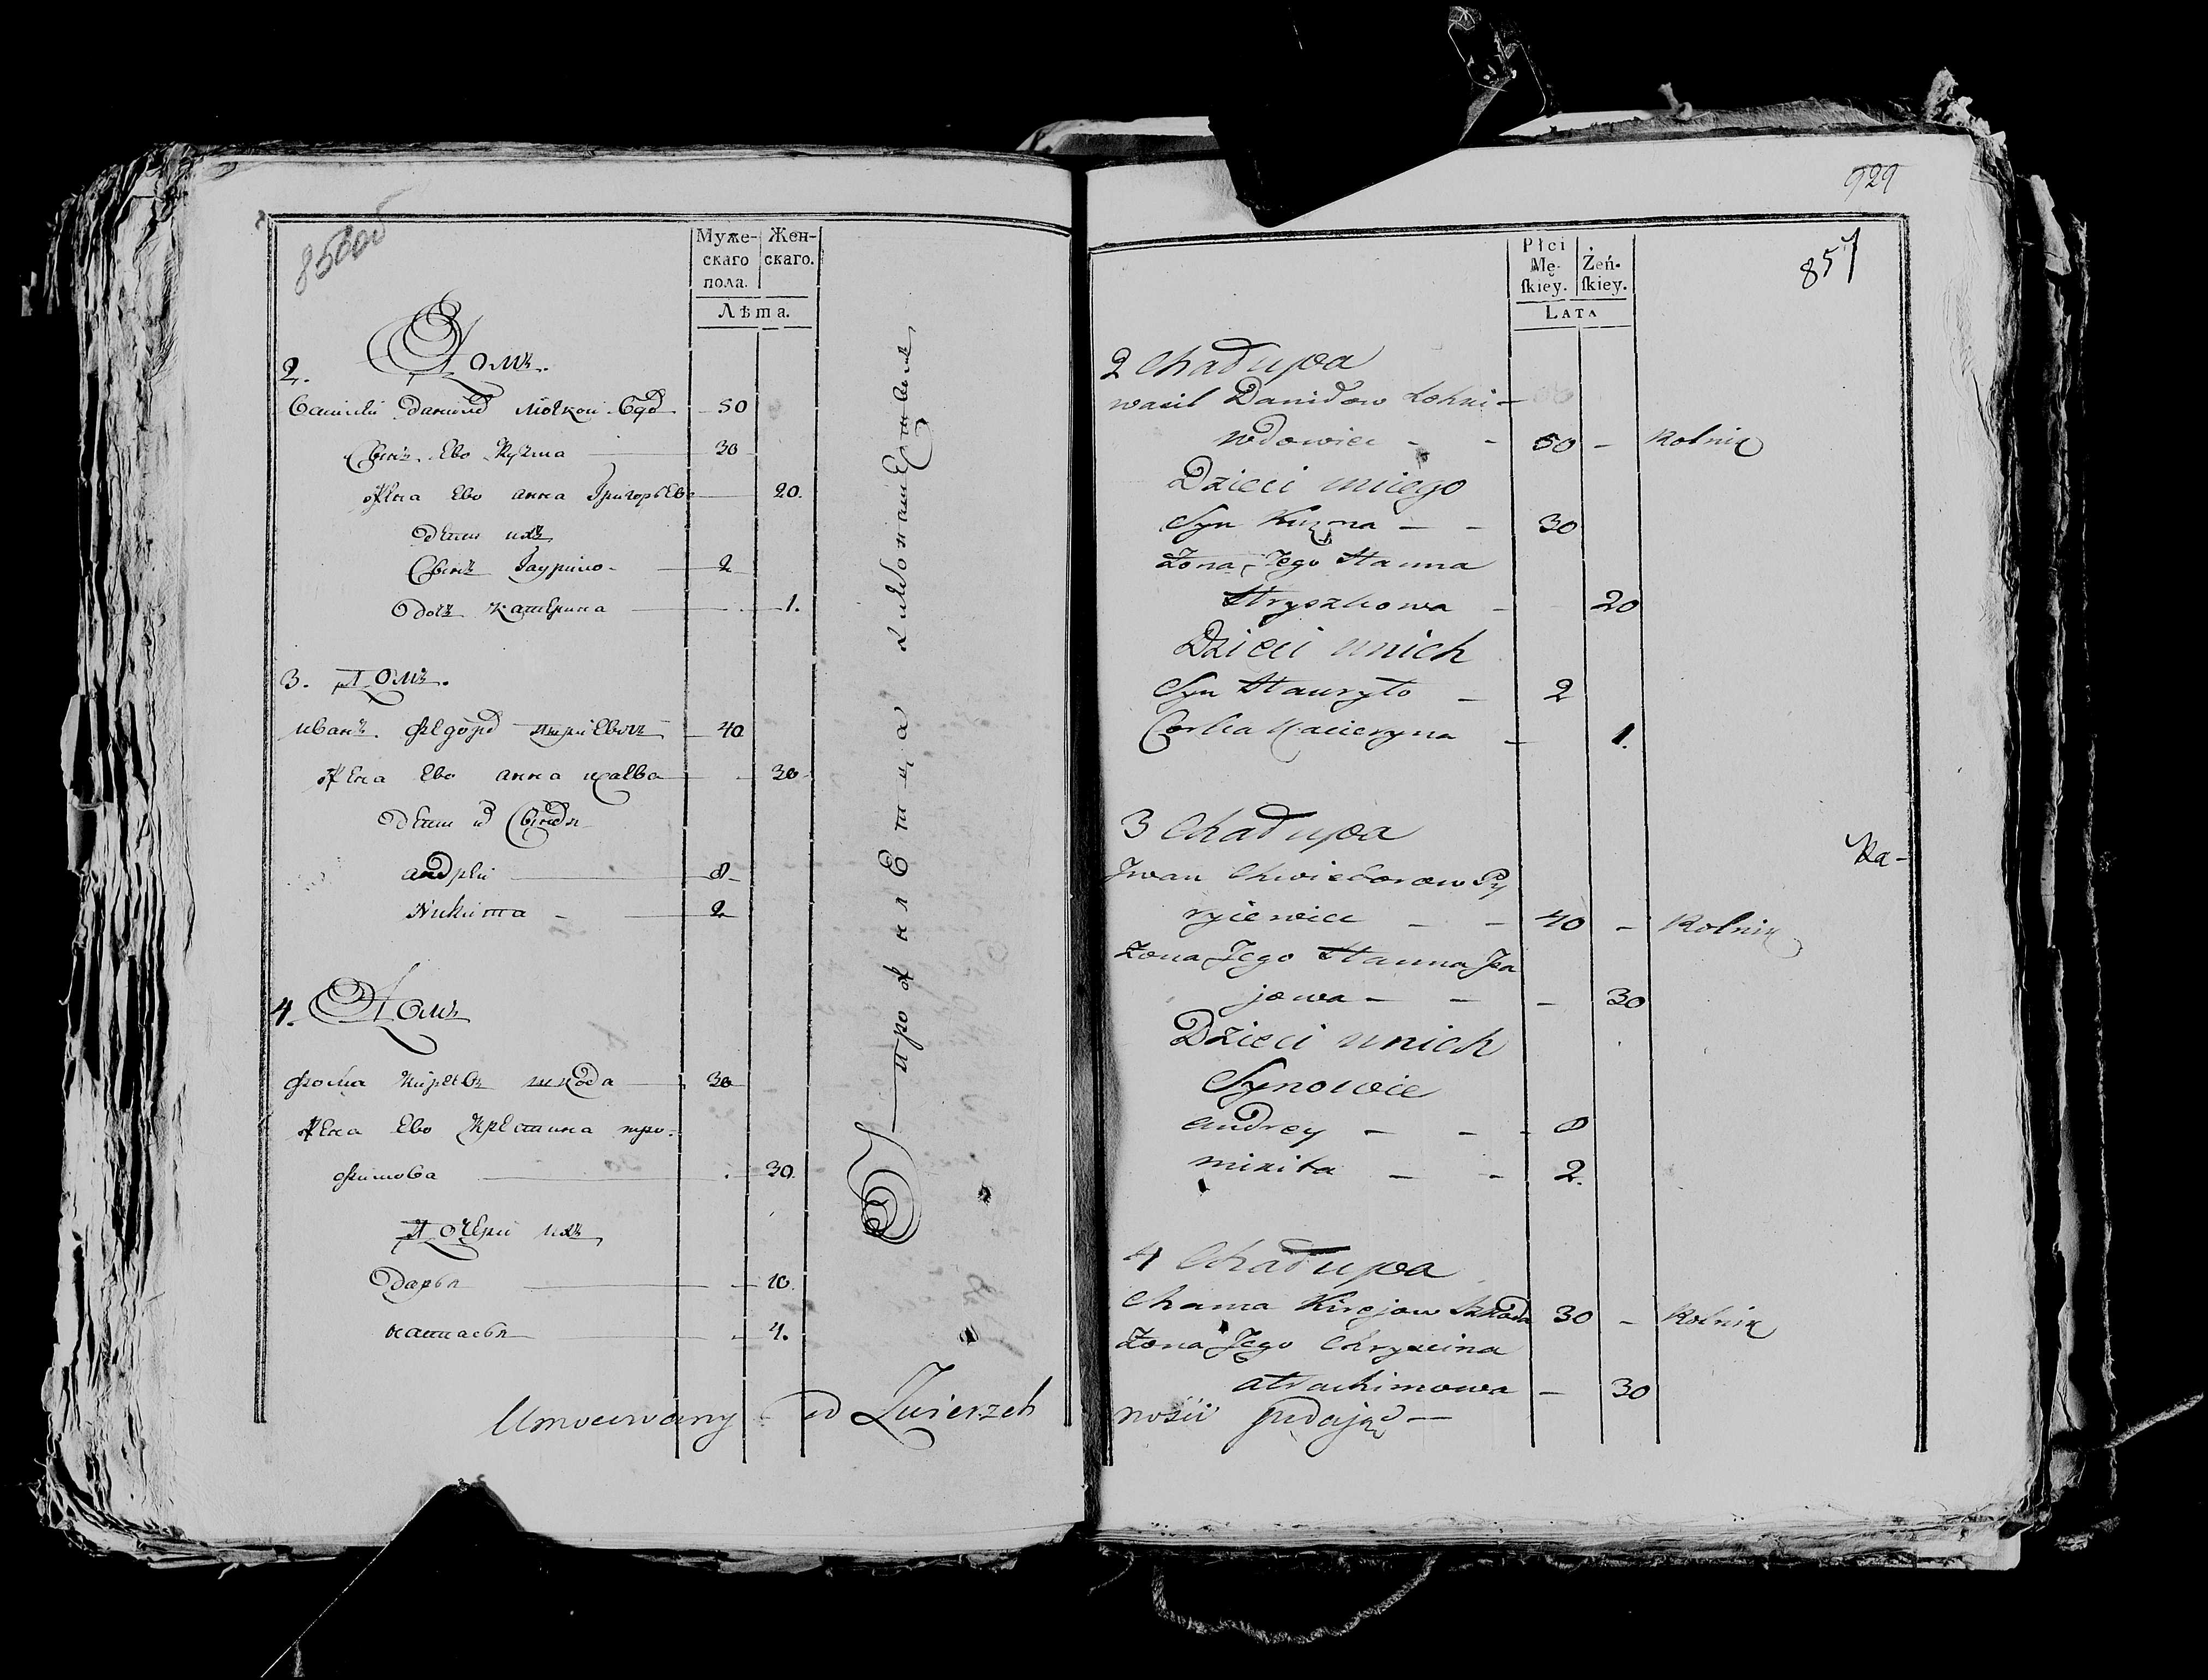 856об
Муже-
скаго
пола.
Жен-
скаго.
Лѣта.
2. Домъ.
Василіи данилд 50
Сынъ Ево Кузма 30
жена Ево анна Григорьева 20.
дети ихъ
Сынъ Гаурило 2
дочь катерина 1.
3. Домъ.
иванъ федорд 40
жена Ево анна 30
дети их
андреи 8
Никита 2
4. Домъ
фома Киреевъ шкода 30
жена Ево Крестина тро-
фимова 30.
Дочери ихъ
дарья 10.
настасья 4.
Umocowany od Zwierzch
929
857
Płci
Mę-
ſkiey.
Żeń-
ſkiey.
LATA
2 Chałupa
wasil Daniłow
wdowiec - - 50 - Rolnik
Dzieci uniego
Syn Kuzma - - 30
Żona Jego Hanna
Hryszkowa - 20
Dzieci unich
Syn Hauryło - 2
Corka Kacieryna - 1.
3 Chałupa
Ra-
Iwan Chwiedorow Py
ryiewicz - - 40 - Rolnik
Żona Jego Hanna Jsa
jowa - - - 30
Dzieci unich
Synowie
Andrey - - - 8
mikita - - 2.
4 Chałupa
Chama Kirejow Szkoda 30 - Rolnik
Żona Jego Chryscina
atrachimowa - 30
ności podając